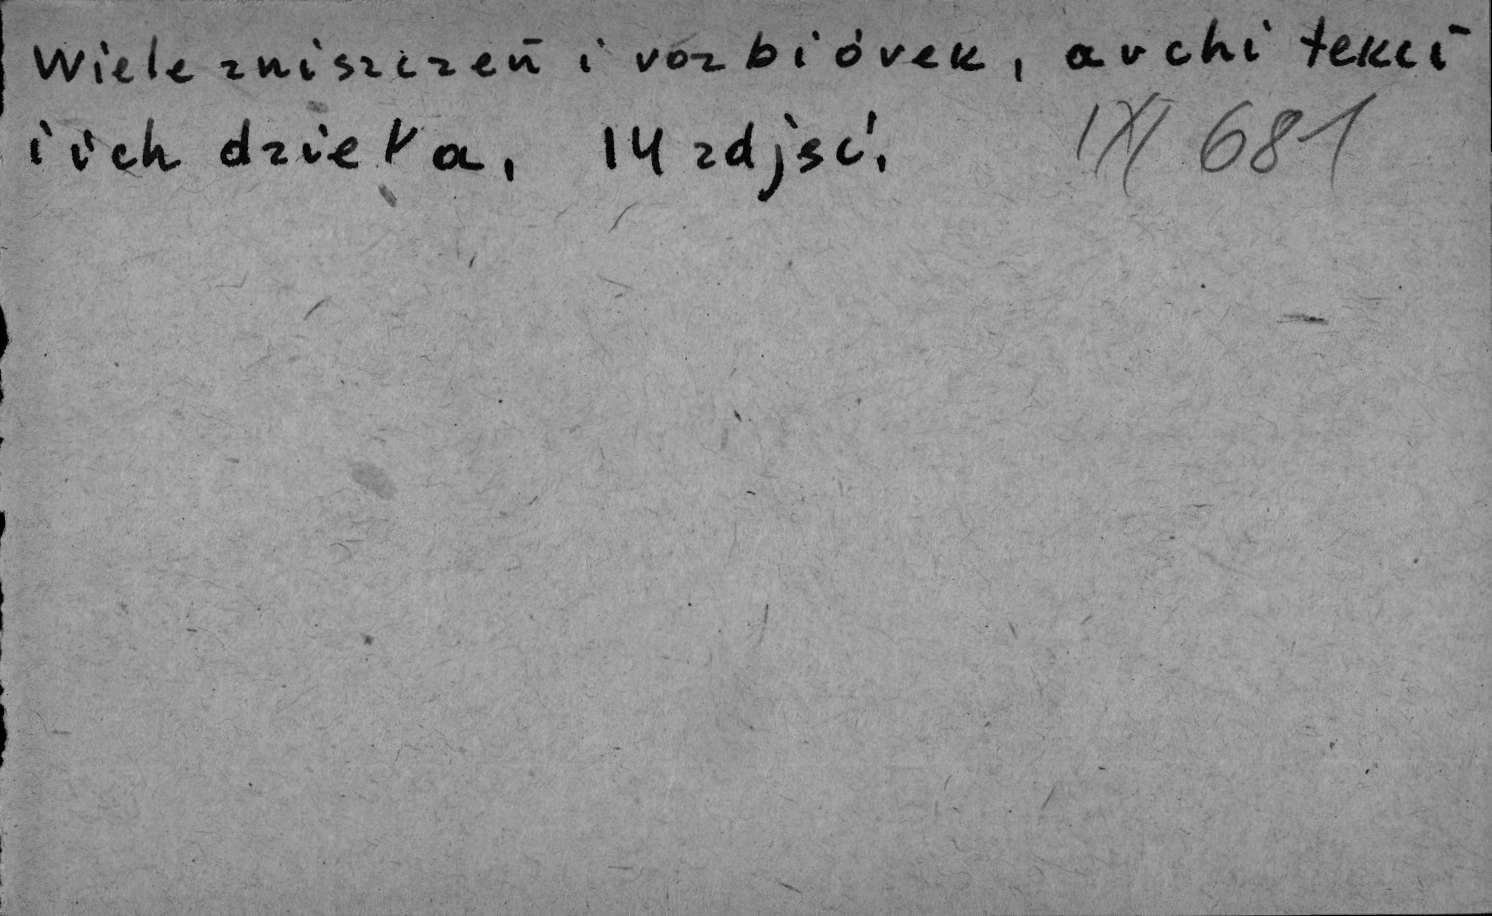 Wiele zniszczeń i rozbiórek, architekci
i ich dzieła, 14 zdjęć.
IXI 681